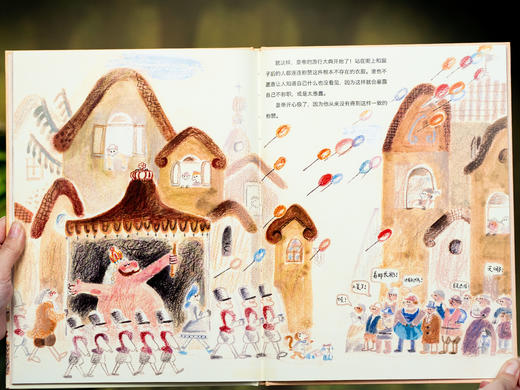 就这样，皇帝的游行大典开始了！站在街上和窗
子后的人都连连称赞这件根本不存在的衣服。谁也不
愿意让人知道自己什么也没看见，因为这样就会暴露
自己不称职，或是太愚蠢。
皇帝开心极了，因为他从来没有得到这样一致的
称赞。
看那衣袍！
天哪！